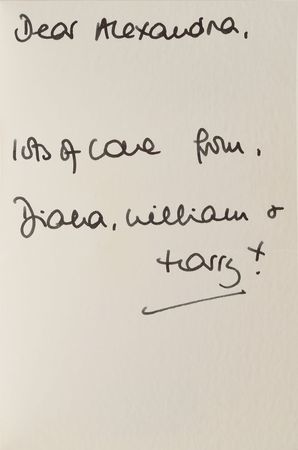 Dear Alexandra,
lots of love from,
Diana, William &
Harry x